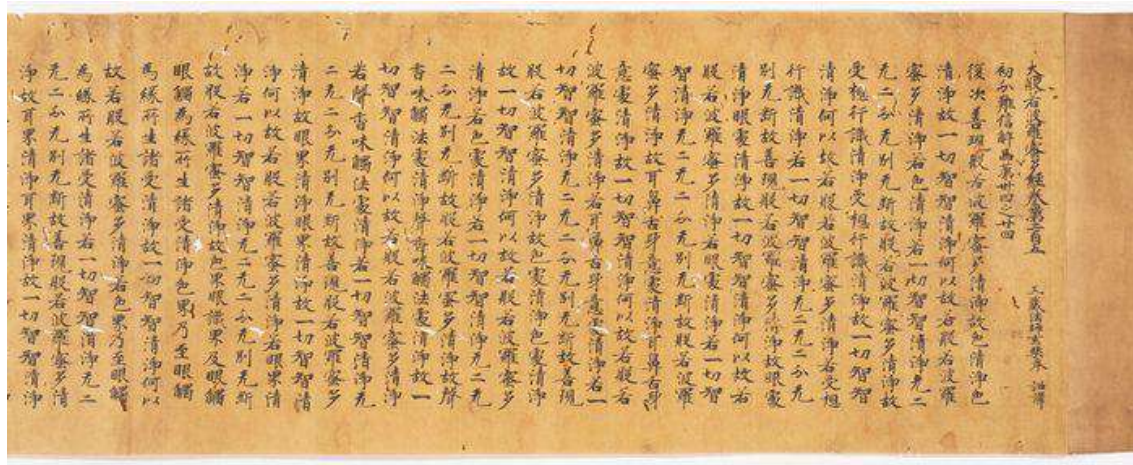 大般若波羅蜜多經卷第二百五 三藏法師玄奘奉 詔譯
初分難信解品第卅四之廿四
復次善現般若波羅蜜多清淨故色清淨色
清淨故一切智智清淨何以故若般若波羅
蜜多清淨若色清淨若一切智智清淨无二
无二分无別无斷故般若波羅蜜多清淨故
受想行識清淨受想行識清淨故一切智智
清淨何以故若般若波羅蜜多清淨若受想
行識清淨若一切智智清淨无二无二分无
別无斷故善現般若波羅蜜多清淨故眼處
清淨眼處清淨故一切智智清淨何以故若
般若波羅蜜多清淨若眼處清淨若一切智
智清淨无二无二分无別无斷故般若波羅
蜜多清淨故耳鼻舌身意處清淨耳鼻舌身
意處清淨故一切智智清淨何以故若般若
波羅蜜多清淨若耳鼻舌身意處清淨若一
切智智清淨无二无二分无別无斷故善現
般若波羅蜜多清淨故色處清淨色處清淨
故一切智智清淨何以故若般若波羅蜜多
清淨若色處清淨若一切智智清淨无二无
二分无別无斷故般若波羅蜜多清淨故聲
香味觸法處清淨聲香味觸法處清淨故一
切智智清淨何以故若般若波羅蜜多清淨
若聲香味觸法處清淨若一切智智清淨无
二无二分无別无斷故善現般若波羅蜜多
清淨故眼界清淨眼界清淨故一切智智清
淨何以故若般若波羅蜜多清淨若眼界清
淨若一切智智清淨无二无二分无別无斷
故般若波羅蜜多清淨故色界眼識界及眼觸
眼觸為緣所生諸受清淨色界乃至眼觸
為緣所生諸受清淨故一切智智清淨何以
故若般若波羅蜜多清淨若色界乃至眼觸
為緣所生諸受清淨若一切智智清淨无二
无二分无別无斷故善現般若波羅蜜多清
淨故耳界清淨耳界清淨故一切智智清淨